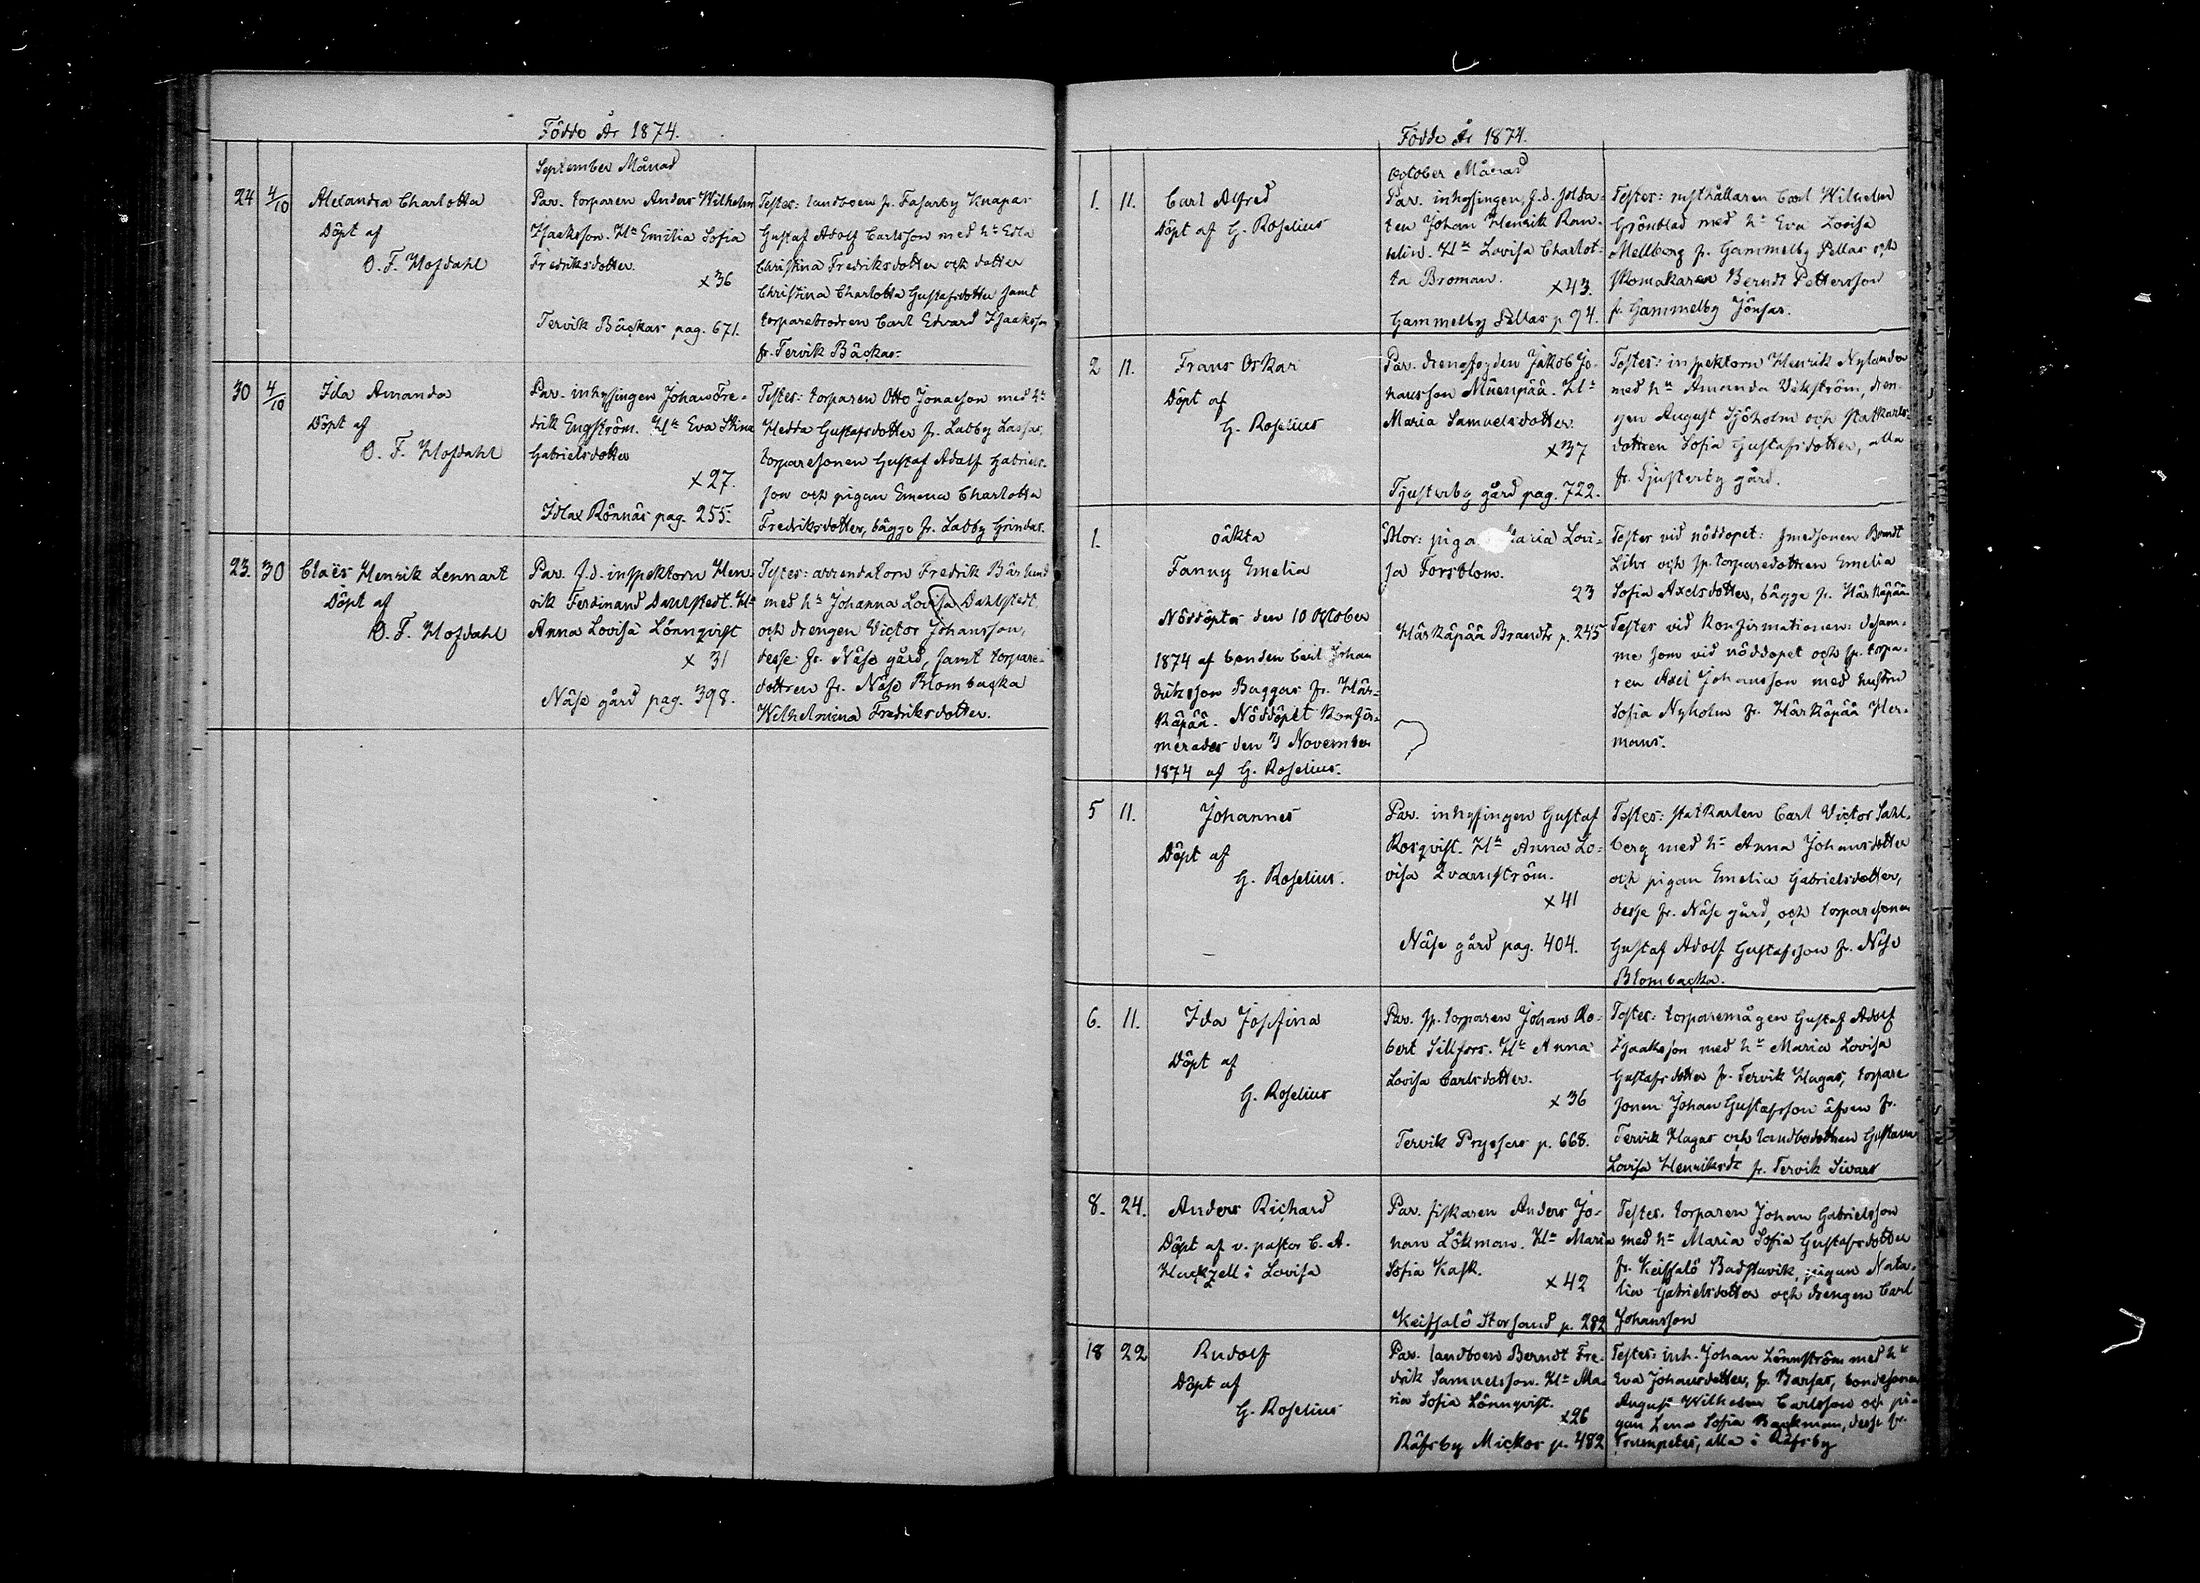 Födde År 1874.
September Månad
24 4/10 Alexandra Charlotta
Döpt af
O. F. Hofdahl
Par. torparen Anders Wilhelm
Isaaksson. Hu Emilia Sofia
Fredriksdotter.
x36
Tervik Bäckas pag. 671.
Testes: landboen fr. Fasarby Knapas
Gustaf Adolf Carlsson med hu Edla
Christina Fredriksdotter och dotter
Christina Charlotta Gustafsdotter samt
torparebrodren Carl Edvard Isaaksson
fr. Tervik Bäckas.
30 4/10 Ida Amanda
Döpt af
O. F. Hofdahl
Par. inhysingen Johan Fre-
drik Engström. Hu Eva Stina
Gabrielsdotter
x27.
Idlax Rönnäs pag. 255.
Testes: torparen Otto Jonasson med hu
Hedda Gustafsdotter fr. Labby Lassas,
torparesonen Gustaf Adolf Gabriels-
son och pigan Emma Charlotta
Fredriksdotter, bägge fr. Labby Grindas.
23. 30 Claës Henrik Lennart
Döpt af
O. F. Hofdahl
Par. f.d. inspektorn Hen-
rik Ferdinand Dahlstedt. Hu
Anna Lovisa Lönnqvist
x 31
Näse gård pag. 398.
Testes: arrendatorn Fredrik Bärlund
med hu Johanna Lovisa Dahlstedt,
och drengen Victor Johansson,
desse fr. Näse gård, samt torpare-
dottren fr. Näse Blombacka
Wilhelmina Fredriksdotter.
Födde År 1874.
October Månad
1. 11. Carl Alfred
Döpt af G. Roselius
Par. inhysingen, f.d. solda-
ten Johan Henrik Ram-
belin. Hu Lovisa Charlot-
ta Broman.
x43.
Gammelby Sellas p. 94.
Testes: rusthållaren Carl Wilhelm
Grönblad med hu Eva Lovisa
Mellberg fr. Gammelby Sellas och
skomakaren Berndt Pettersson
fr. Gammelby Jönsas.
2 11. Frans Oskar
Döpt af
G. Roselius
Par. drengfogden Jakob Jo-
hansson Müenpää. Hu
Maria Samuelsdotter
x37
Tjusterby gård pag. 722.
Testes: inspektorn Henrik Nylander
med hu Amanda Vikström, dren-
gen August Sjöholm och statkarls-
dottren Sofia Gustafsdotter, alla
fr. Tjusterby gård.
1. oäkta
Fanny Emelia
Nöddöptes den 10 October
1874 af bonden Carl Johan
Eriksson Baggas fr. Här-
käpää. Nöddöpet konfir-
merades den 3 November
1874 af G. Roselius.
Mor: pigan Maria Lovi-
sa Forsblom.
23
Härkäpää Brandts p. 245
Testes vid nöddopet: smedsonen Berndt
Lihr och sp. torparedottren Emelia
Sofia Axelsdotter, bägge fr. Härkäpää
Testes vid konfirmationen: desam-
me som vid nöddopet och sp. torpa-
ren Axel Johansson med hustru
Sofia Nyholm fr. Härkäpää Her-
mans.
5 11. Johannes
Döpt af
G. Roselius.
Par. inhysingen Gustaf
Rosqvist. Hu Anna Lo-
visa Qvarnström.
x41
Näse gård pag. 404.
Testes: statkarlen Carl Victor Sahl-
berg med hu Anna Johansdotter
och pigan Emelia Gabrielsdotter,
desse fr. Näse gård, och torparesonen
Gustaf Adolf Gustafsson fr. Näse
Blombacka.
6. 11. Ida Josefina
Döpt af
G. Roselius
Par. sp. torparen Johan Ro-
bert Sillfors. Hu Anna
Lovisa Carlsdotter.
x36
Tervik Prysfars p. 668.
Testes: torparemågen Gustaf Adolf
Isaaksson med hu Maria Lovisa
Gustafsdotter fr. Tervik Hagas, torpare
sonen Johan Gustafsson äfven fr.
Tervik Hagas och landbodottren Gustava
Lovisa Henriksdr fr. Tervik Sivars
8. 24. Anders Richard
Döpt af v. pastor C. A.
Hackzell i Lovisa
Par. fiskaren Anders Jo-
han Lökman. Hu Maria
Sofia Kask.
x42
Keitsalö Storsand p. 282
Testes. torparen Johan Gabrielsson
med hu Maria Sofia Gustafsdotter
fr. Keitsalö Badstuvik, pigan Nata-
lia Gabrielsdotter och drengen Carl
Johansson
18 22 Rudolf
Döpt af
G. Roselius
Par. landboen Berndt Fre-
drik Samuelsson. Hu Ma-
ria Sofia Lönnqvist.
x26
Räfsby Mickos p. 482
Testes: inh. Johan Lönnström med hu
Eva Johansdotter, fr. Barsas, bondesonen
August Wilhelm Carlsson och pi-
gan Lena Sofia Backman, desse fr.
Trumpetas, alla i Räfsby